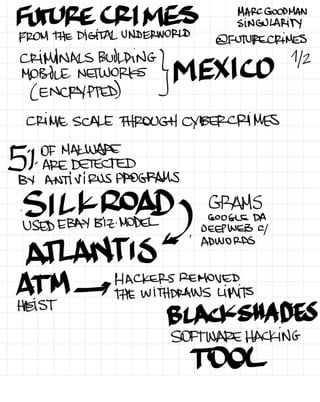 FUTURE CRIMES
FROM THE DIGITAL UNDERWORLD
MARC GOODMAN
SINGULARITY
@FUTURECRIMES
1/2
CRIMINALS BUILDING
MOBILE NETWORKS
(ENCRYPTED)
MEXICO
CRIME SCALE THROUGH CYBERCRIMES
5% OF MALWARE
ARE DETECTED
BY ANTIVIRUS PROGRAMS
SILKROAD
USED EBAY BIZ. MODEL
GRAMS
GOOGLE DA
DEEPWEB C/
ADWORDS
ATLANTIS
ATM
HEIST
HACKERS REMOVED
THE WITHDRAWS LIMITS
BLACKSHADES
SOFTWARE HACKING
TOOL